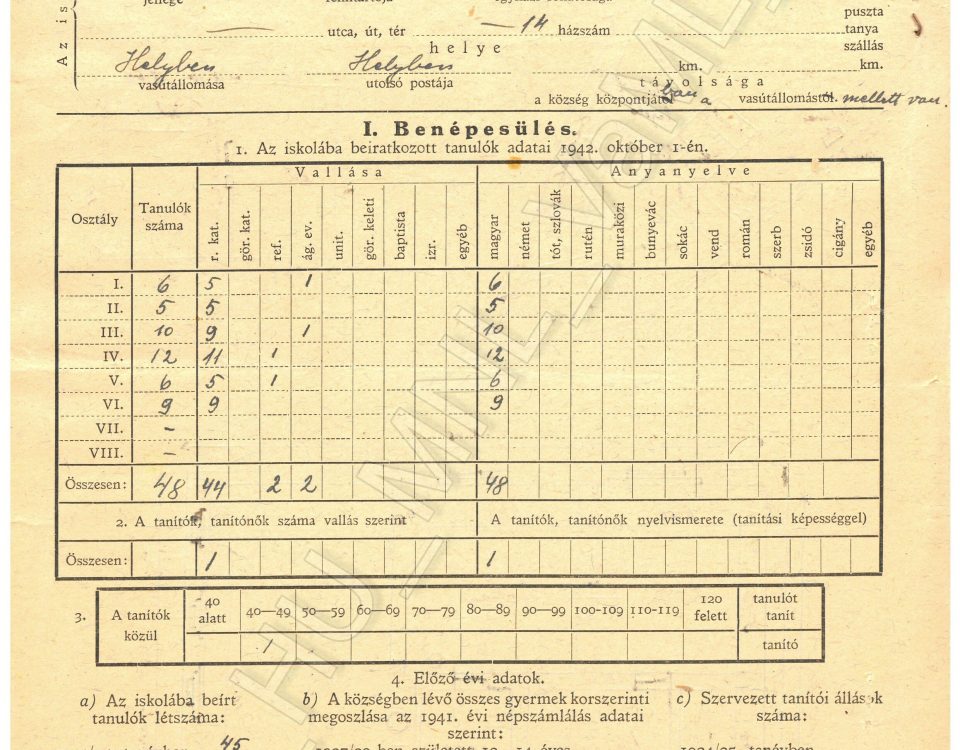 jellege fenntartója
puszta
— utca, út, tér — 14 házszám tanya
Az is
helye szállás
Helyben Helyben km. km.
vasútállomása utolsó postája távolsága
a község központjától ban a vasútállomástól mellett van.
I. Benépesülés.
1. Az iskolába beiratkozott tanulók adatai 1942. október 1-én.
Osztály Tanulók száma Vallása Anyanyelve
r. kat. gör. kat. ref. ág. ev. unit. gör. keleti baptista izr. egyéb magyar német tót, szlovák rutén muraközi bunyevác sokác vend román szerb zsidó cigány egyéb
I. 6 5 1 6
II. 5 5 5
III. 10 9 1 10
IV. 12 11 1 12
V. 6 5 1 6
VI. 9 9 9
VII. –
VIII. –
Összesen: 48 44 2 2 48
2. A tanítók, tanítónők száma vallás szerint A tanítók, tanítónők nyelvismerete (tanítási képességgel)
Összesen: 1 1
3. A tanítók közül 40 alatt 40—49 50—59 60—69 70—79 80—89 90—99 100-109 110-119 120 felett tanulót tanít
1 tanító
4. Előző évi adatok.
a) Az iskolába beírt b) A községben lévő összes gyermek korszerinti c) Szervezett tanítói állások
tanulók létszáma: megoszlása az 1941. évi népszámlálás adatai száma:
szerint:
45
HU_MNL_VaML